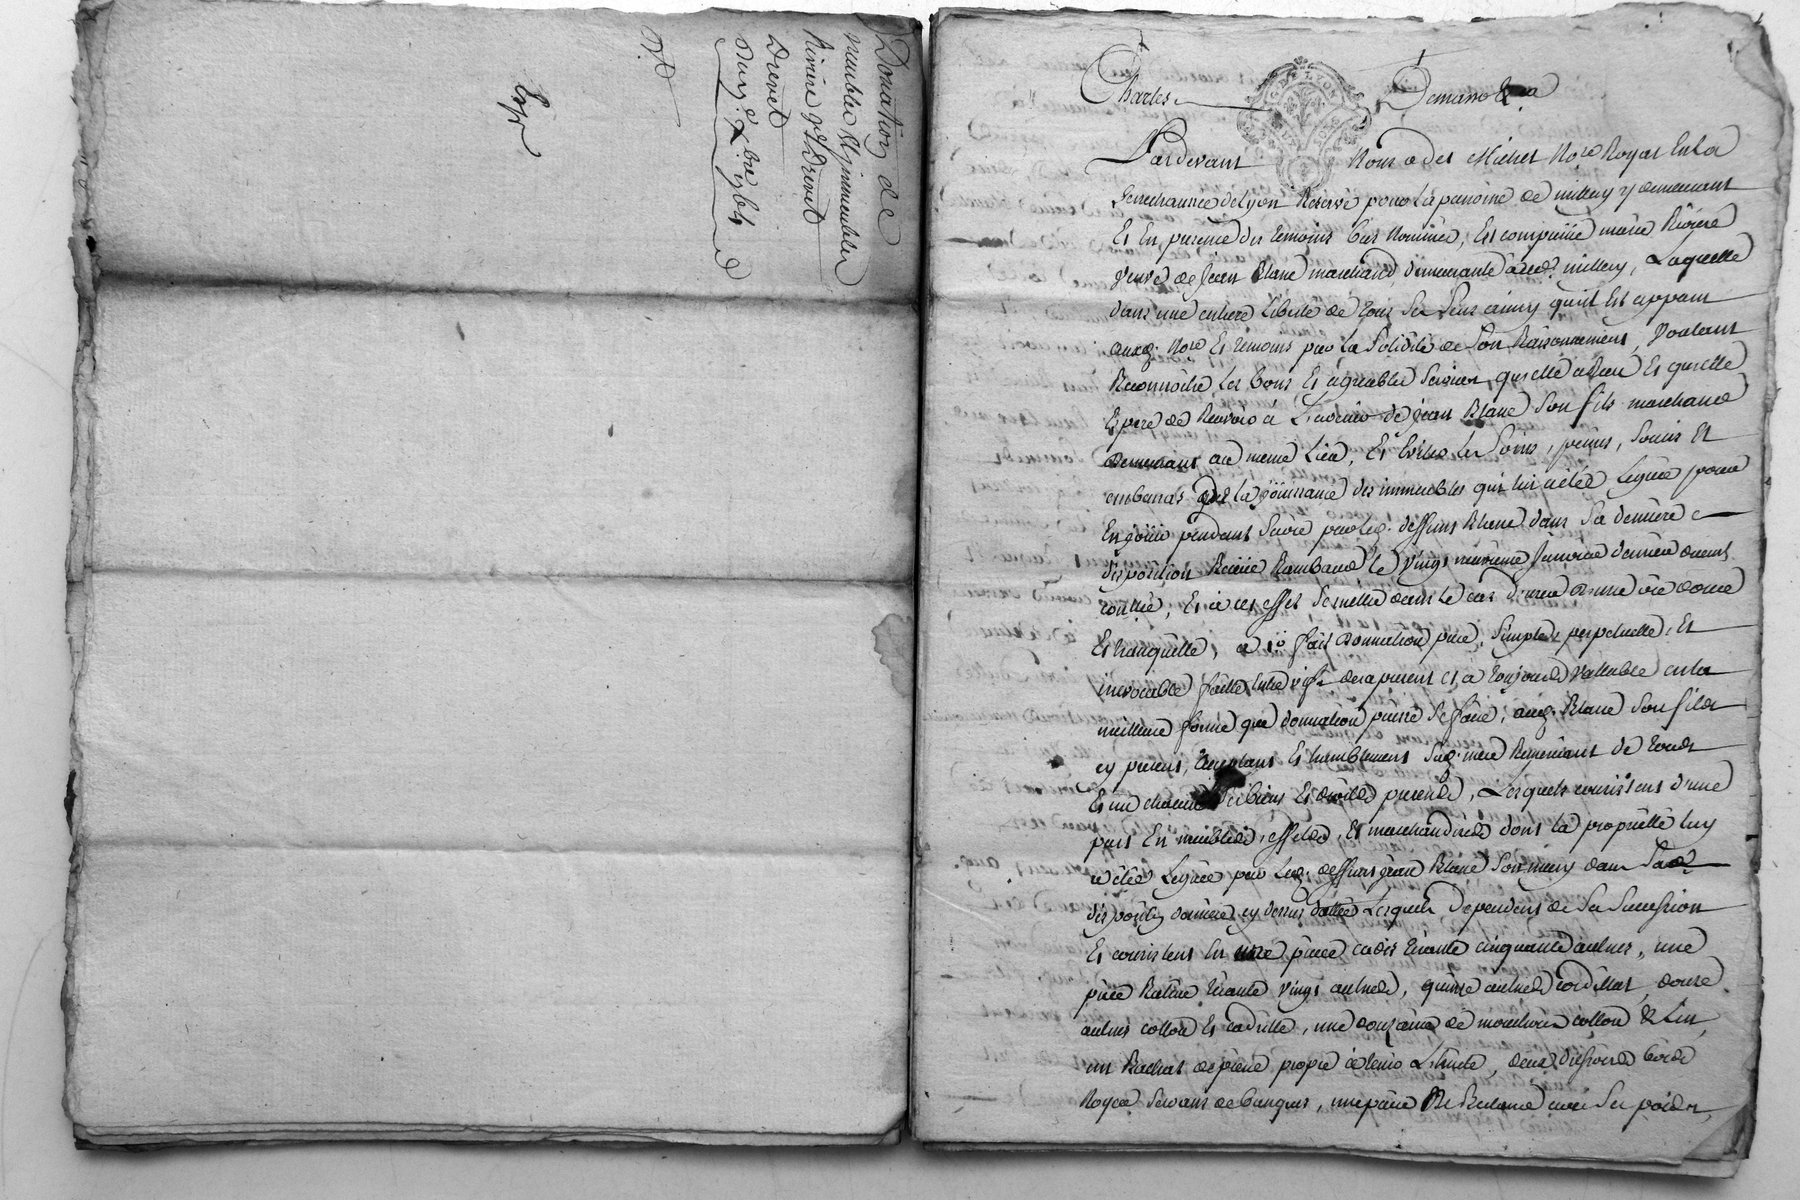 Donation de
meubles & jmmeubles
Riviere
Drevet
Exp
Charles Demano &a
GE DE LYON
Pardevant Nous Michel No.re Royal En la
Senechaussée de Lyon Reservé pour la paroisse de millery y demeurant
Et En presence des temoins bas Nommés, Est comparüe marie Riviere
Veuve de Jean Blanc marchand, demeurante aud. millery, Laquelle
dans une entiere Liberté de tous Ses Sens ainsy quil Est apparu
auxd. No.re Et temoins par la Solidité de Son Raisonnement, Voulant
Reconnoitre Les bons Et agreables Services quelle a Reçu Et quelle
Espere de Recevoir à L'avenir de jean Blanc Son fils marchand
demeurant au meme Lieu, Et Eviter les Soins, peines, Soucis Et
embarras de la joüissance des immeubles qui lui a été Leguée pour
En joüir pendant Sa vie par led. deffunt Blanc dans Sa derniere
disposition Reçüe Rambaud le Vingt neuvieme Janvier dernier
Controlé, Et à cet effet Se mettre dans le cas d'une vie douce
Et tranquille, a fait donnation pure, Simple, perpetuelle, Et
irrevocable faitte Entre vifs des a present Et a toujours Vallable en la
meilleure forme que donnation puisse Se faire, aud. Blanc Son fils
cy present, acceptant Et humblement Sad. mere Remerciant de tous
Et un chacun Ses biens Et droits presents, Lesquels consistent d'une
part En meubles, effets, Et marchandises dont la proprieté luy
a été Leguée par led. deffunt jean Blanc Son mary dans Sad.
disposition derniere cy dessus dattée Lesquels Dependent de Sa Succession
Et consistent En une piece cadis tirante cinquante aulnes, une
piece Ratine tirante vingt aulnes, quinze aulnes cordillat, douze
aulnes cotton Et, une douzaine de mouchoirs cotton & Lin,
un Bachat de pierre propre à tenir L'huile, deux
Noyer Servant de banques, une paire de Balance avec Ses poids,